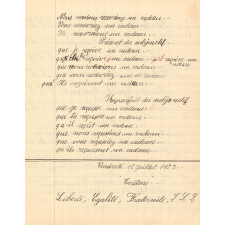 Nous recevons un cadeau
Vous recevez un cadeau
Ils reçoivent un cadeau.
Présent du subjonctif
que je reçoive un cadeau.
que tu reçoives un cadeau.
que nous recevions un cadeau
que vous receviez un cadeau
qu'ils reçoivent un cadeau.
Imparfait du subjonctif
que je reçusse un cadeau
que tu reçusses un cadeau.
qu'il reçût un cadeau.
que nous reçussions un cadeau
que vous reçussiez un cadeau.
qu'ils reçussent un cadeau.
Vendredi 15 juillet 1927
Ecriture
Liberté, Egalité, Fraternité,